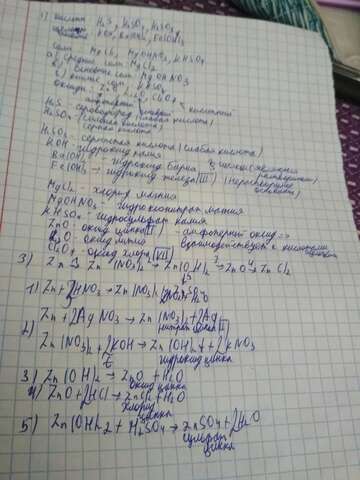 1) кислоты H2S, H2SO3, H2SO4
KOH, Ba(OH)2, Fe(OH)3
соли MgCl2, MgOHNO3, KHSO4
а) средние соли: MgCl2
б) основные соли MgOHNO3
в) кислые соли KHSO4
оксиды: ZnO, CrO3
амфотерный кислотный
H2S - сероводород (слабая кислота)
H2SO3 (слабая кислота)
серная кислота
H2SO3 - сернистая кислота (слабая кислота)
KOH - гидроксид калия
Ba(OH)2 - гидроксид бария
Fe(OH)3 - гидроксид железа (III) (нерастворимое
MgCl2 - хлорид магния
MgOHNO3 - гидроксонитрат магния
KHSO4 - гидросульфат калия
ZnO - оксид цинка(II) - амфотерный оксид =>
оксид взаимодействует с кислотами
CrO3 оксид хрома (VI)
3) Zn → Zn(NO3)2 → Zn(OH)2 3→ ZnO 4→ ZnCl2
1) Zn + 2HNO3 → Zn(NO3)2
Zn + 2AgNO3 → Zn(NO3)2 + 2Ag
нитрат цинка
2) Zn(NO3)2 + 2KOH → Zn(OH)2↓ + 2KNO3
t гидроксид цинка
3) Zn(OH)2 → ZnO + H2O
оксид цинка
4) ZnO + 2HCl → ZnCl2 + H2O
хлорид
цинка
5) Zn(OH)2 + H2SO4 → ZnSO4 + 2H2O
сульфат
цинка